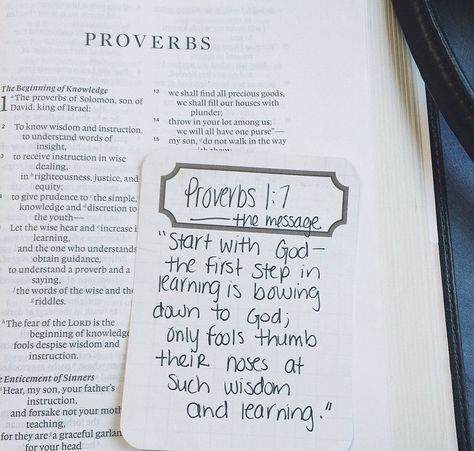 PROVERBS
The Beginning of Knowledge
1 ᵃThe proverbs of Solomon, son of
David, king of Israel:
2 To know wisdom and instruction,
to understand words of
insight,
3 to receive instruction in wise
dealing,
in ᵇrighteousness, justice, and
equity;
4 to give prudence to ᶜthe simple,
knowledge and ᵈdiscretion to
the youth—
Let the wise hear and ᵉincrease i
learning,
and the one who understands
obtain guidance,
to understand a proverb and a
saying,
ᶠthe words of the wise and the
ᵍriddles.
ʰThe fear of the LORD is the
beginning of knowledge
fools despise wisdom and
instruction.
Enticement of Sinners
ⁱHear, my son, your father's
instruction,
and forsake not your moth
teaching,
for they are ʲa graceful garlan
for your head
13 we shall find all precious goods,
we shall fill our houses with
plunder;
14 throw in your lot among us;
we will all have one purse"—
15 my son, ᵠdo not walk in the way
Proverbs 1:7
—the message
"Start with God—
the first step in
learning is bowing
down to God;
only fools thumb
their noses at
such wisdom
and learning."